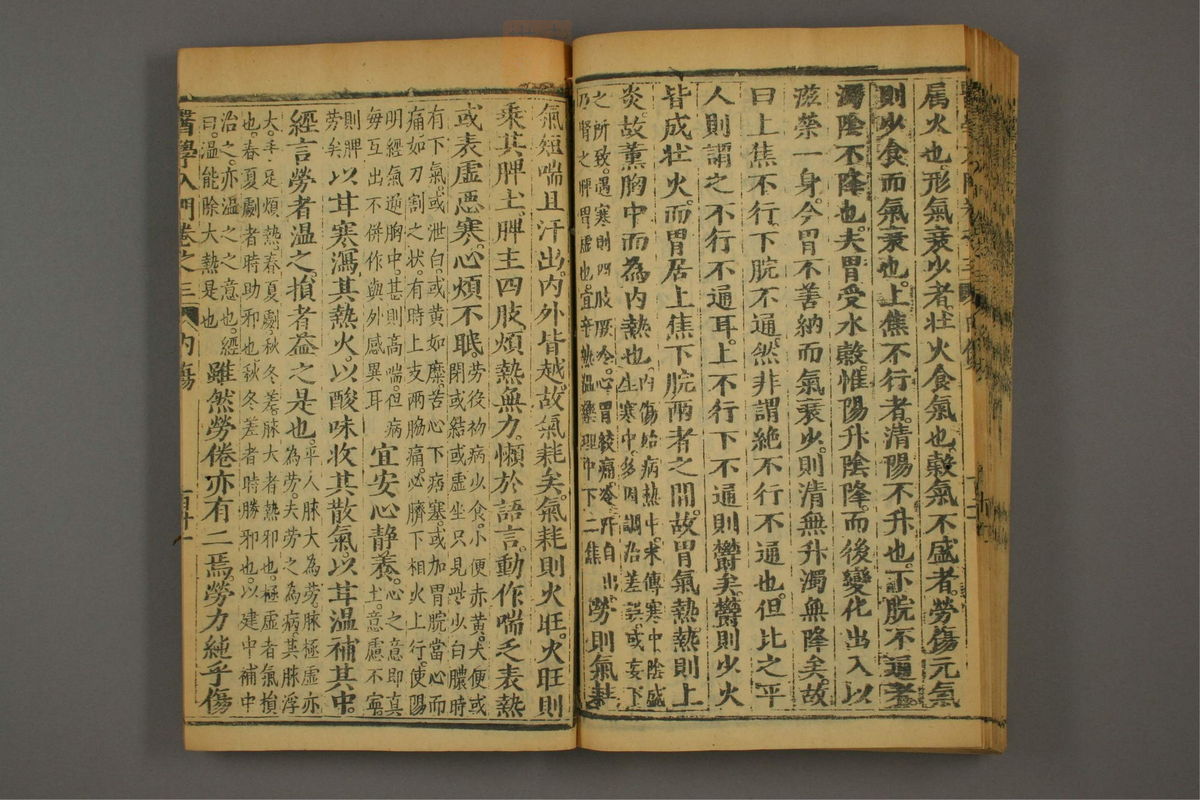 属火也形氣衰少者壮火食氣也穀氣不盛者勞傷元氣
則少食而氣衰也上焦不行者清陽不升也下脘不通者
濁陰不降也夫胃受水穀惟陽升陰降而後變化出入以
滋榮一身今胃不善納而氣衰少則清無升濁無降矣故
曰上焦不行下脘不通然非謂絶不行不通也但比之平
人則謂之不行不通耳上不行下不通則欝矣欝則少火
皆成壮火而胃居上焦下脘兩者之間故胃氣熱熱則上
炎故薰胸中而為内熱也内傷始病熱中末傳寒中陰盛
生寒中多因調治差誤或妄下
之所致遇寒則四肢厥冷心胃絞痛冷汗自出
乃腎之脾胃虛也宜辛熱溫藥理中下二焦
勞則氣耗
氣短喘且汗出内外皆越故氣耗矣氣耗則火旺火旺則
乘其脾土脾主四肢煩熱無力懶於語言動作喘乏表熱
或表虛惡寒心煩不眠勞役初病少食小便赤黄大便或
閉或結或虛坐只見些少白膿時
有下氣或泄白或黄如糜苦心下病塞或加胃脘當心而
痛如刀割之状有時上支兩脇痛必臍下相火上行使陽
明經氣逆胸中甚則高喘但病
毎互出不併作與外感異耳
宜安心静養心之意即真
土意慮不寧
則脾
勞矣
以甘寒瀉其熱火以酸味收其散氣以甘温補其中
經言勞者温之損者益之是也平人脉大為勞脉極虛亦
為勞夫勞之為病其脉浮
大手足煩熱春夏劇秋冬差脉大者熱邪也極虛者氣損
也春夏劇者時助邪也秋冬差者時勝邪也以建中補中
治之亦温之之意也經
曰温能除大熱是也
雖然勞倦亦有二焉勞力純乎傷
醫學入門卷之三 内傷